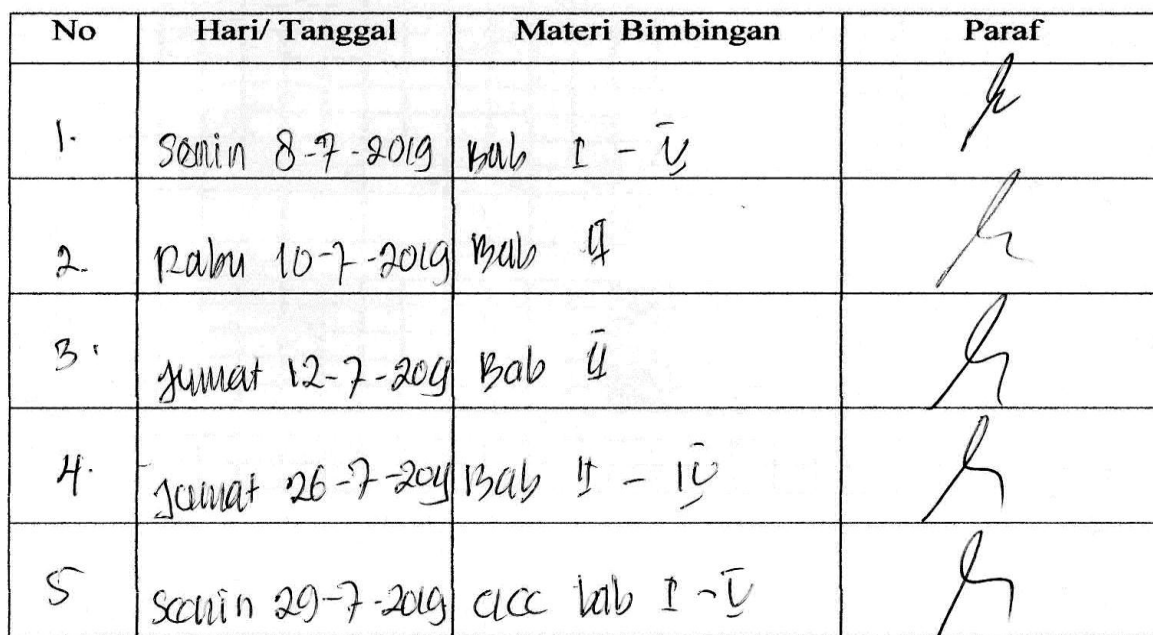 No Hari/ Tanggal Materi Bimbingan Paraf
1. Senin 8-7-2019 Bab I - V
2. Rabu 10-7-2019 Bab II
3. Jumat 12-7-2019 Bab II
4. Jumat 26-7-2019 Bab II - IV
5 Senin 29-7-2019 acc bab I - V